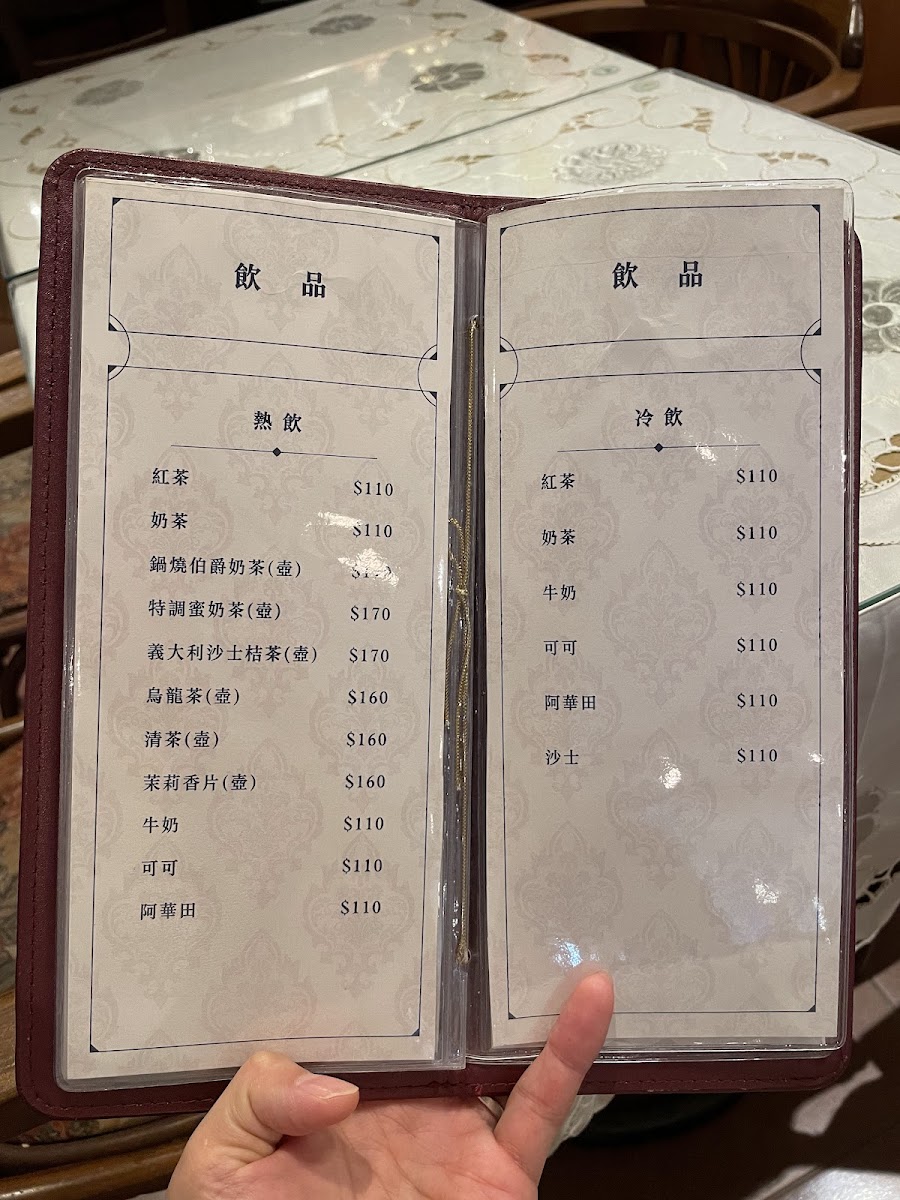 飲品
熱飲
紅茶 $110
奶茶 $110
鍋燒伯爵奶茶(壺)
特調蜜奶茶(壺) $170
義大利沙士桔茶(壺) $170
烏龍茶(壺) $160
清茶(壺) $160
茉莉香片(壺) $160
牛奶 $110
可可 $110
阿華田 $110
飲品
冷飲
紅茶 $110
奶茶 $110
牛奶 $110
可可 $110
阿華田 $110
沙士 $110